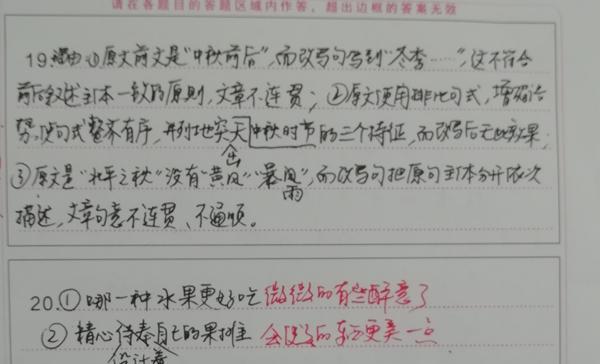 请在各题目的答题区域内作答，超出边框的答案无效
19.理由①原文前文是"中秋前后"，而改写句写到"冬季……"，这不符合
前后叙述主体一致的原则，文章不连贯；②原文使用排比句式，增强语
势，使句式整齐有序，并列地突天中秋时节的三个特征，而改写后无此效果；
出
③原文是"北平之秋"没有"黄风""暴风"，而改写句把原句主体分开依次
雨
描述，文章句意不连贯、不通顺。
20.①哪一种水果更好吃 微微的有些醉意了
②精心侍奉自己的果摊 东西更美一点